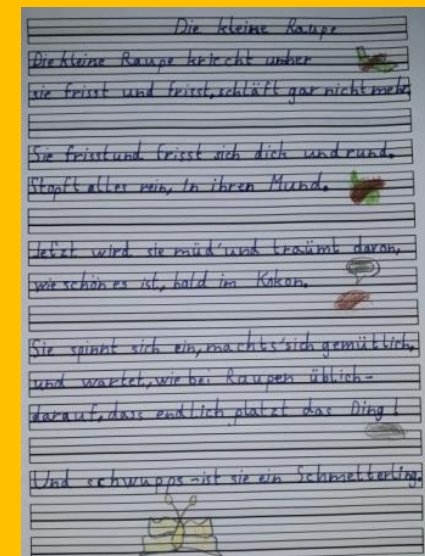 Die kleine Raupe
Die kleine Raupe kriecht umher
sie frisst und frisst, schläft gar nicht mehr,
Sie frisst und frisst sich dick und rund.
Stopft alles rein, in ihren Mund.
Jetzt wird sie müd' und träumt davon,
wie schön es ist, bald im Kokon.
Sie spinnt sich ein, machts'sich gemütlich,
und wartet, wie bei Raupen üblich-
darauf, dass endlich platzt das Ding!
Und schwupps-ist sie ein Schmetterling.